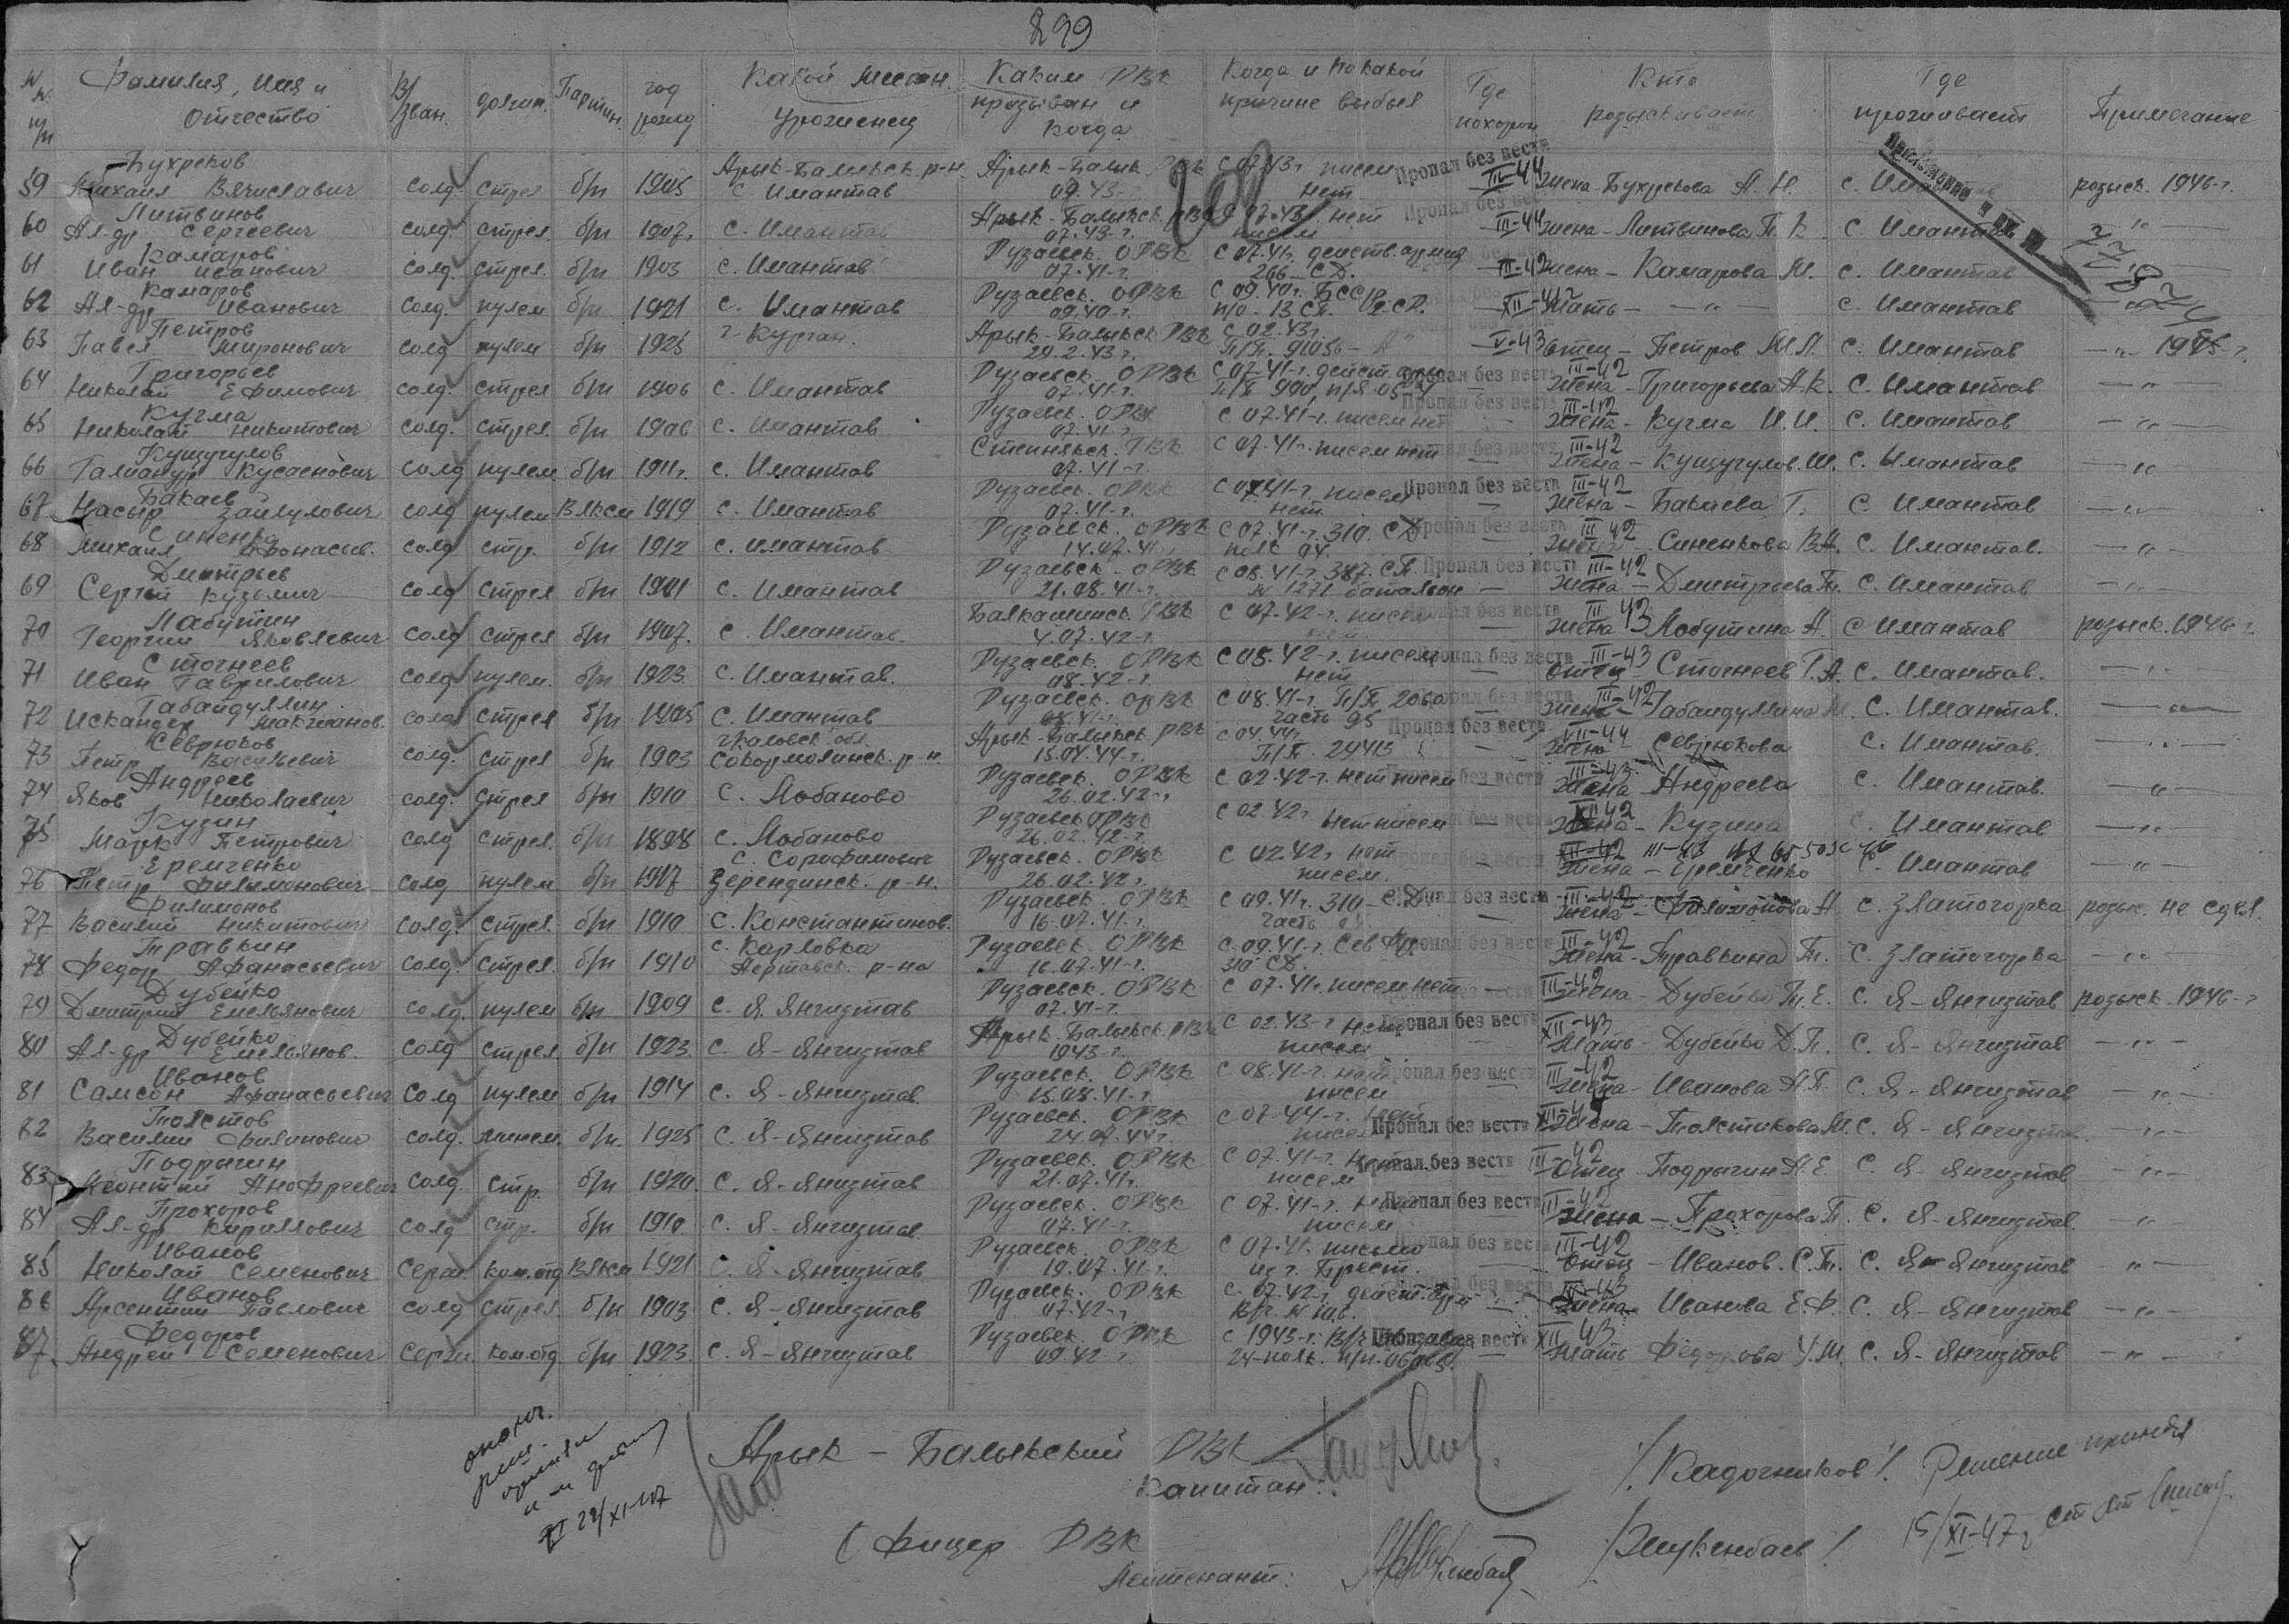 299
№№ п/п Фамилия, имя и отчество В/зван. должн. Партийн. год рожд Какой местн. уроженец Каким РВК призыван и когда Когда и по какой причине выбыл Где похорон Кто разыскивает Где проживает Примечание
59 Бухреков Михаил Вячиславич солд. стрел б/п 1905 Арык-Балыкск. р-н с Имантав Арык-Балык РВК 09.43 с 07.43 г. писем нет Пропал без вести III-44 жена-Бухрекова А. Н. розыск. 1946-г.
60 Литвинов Ал-др Сергеевич солд. стрел. б/п 1907. с. Имантав Арык-Балыкск. РВК 07.43-г. нет писем Пропал без вести III-44 жена-Литвинова с. Имантав — " —
61 Камаров Иван Иванович солд. стрел. б/п 1903 с. Имантав Рузаевск. ОРВК 07.41-г. с 07.41г. действ. армия 266 СД. III-42 жена - Камарова М. с. Имантав
62 Камаров Ал-др Иванович солд. пулем б/п 1921 с. Имантав Рузаевск. ОРВК 09.40-г. с 09.40г. БССР мать — " — с. Имантав
63 Петров Павел Миронович солд пулем б/п 1925 г. Курган. Арык-Балыкск РВК 29.2.43 г. с 02.43г. V-43 отец - Петров М.П. с. Имантав — " — 1945 г.
64 Григорьев Николай Ефимович солд. стрел б/п 1906 с. Имантав Рузаевск. ОРВК 07.41-г. с 07.41-г. дейст. арм Пропал без вести III-42 жена - Григорьева А.К. с. Имантав — " —
65 Кучма Николай Никитович солд. стрел. б/п 1906 с. Имантав Рузаевск. ОРВК 07.41-г. с 07.41-г. писем нет Пропал без вести III-42 жена - Кучма И.И. с. Имантав — " —
66 Кущугулов Кусаснович солд пулем б/п 1911г. с. Имантав Степнякск. РВК 07.41-г. с 07.41-г. писем нет Пропал без вести III-42 жена - Кущугулов. Ш. с. Имантав — " —
67 Бакаев Насыр солд пулем ВЛКСМ 1919 с. Имантав Рузаевск. ОРВК 07.41-г. с 07.41-г. писем нет Пропал без вести III-42 жена - Бакаева Г. с Имантав — " —
68 Синенко Михаил Афонасьев. солд стр. б/п 1912 с. Имантав Рузаевск. ОРВК 14.07.41г. с 07.41-г. 310. СД полк 94. Пропал без вести III 42 жена Синенкова с. Имантав. — " —
69 Дмитрьев Сергей Кузьмич солд стрел б/п 1901 с. Имантав Рузаевск. ОРВК 21.08.41-г. с 08.41-г. 387. СД. № 1271 батальон Пропал без вести III-42 жена - Дмитрьева с. Имантав — " —
70 Лабутин Георгий Яковлевич солд стрел б/п 1907. с. Имантав. Балкашинск. РВК 4.07.42-г. с 07.42-г. писем нет Пропал без вести III 43 жена Лабутина А. с Имантав розыск. 1946-г.
71 Стогнеев Иван Гаврилович солд пулем. б/п 1923. с. Имантав. Рузаевск. ОРВК 08.42-г. с 08.42-г. писем нет Пропал без вести III-43 отец - Стогнеев Г.А. с. Имантав. — " —
72 Габайдуллин Искандер Макжанов. солд стрел б/п 1905 с. Имантав Рузаевск. ОРВК 08.41-г. с 08.41-г. П/П 2060 часть 95 Пропал без вести III-42 жена - Габайдуллина с. Имантав. — " —
73 Севрюков Петр Васильевич солд. стрел б/п 1903 Чкаловск обл. р-н. Арык-Балыкск РВК 15.04.44-г. с 04.44г. П/П. 24413 Пропал без вести VII-44 жена Севрюкова с. Имантав. — " —
74 Андреев Яков Николаевич солд. стрел б/п 1910 с. Лобаново Рузаевск. ОРВК 26.02.42-г. с 02.42-г. нет писем Пропал без вести III-43 жена - Андреева с. Имантав. — " —
75 Кузин Марк Петрович солд стрел. б/п 1898 с. Лобаново Рузаевск ОРВК 26.02.42-г. с 02.42г. нет писем Пропал без вести жена - Кузина с. Имантав — " —
76 Еремченко Петр Филимонович солд пулем б/п 1917 с. Сорафимович Зерендинск. р-н. Рузаевск. ОРВК 26.02.42г. с 02.42г. нет писем. Пропал без вести жена - Еремченко с. Имантав — " —
77 Филимонов Василий Никитович солд. стрел. б/п 1910 с. Константинов. Рузаевск. ОРВК 16.07.41-г. с 09.41г. 310-СД. Пропал без вести III-42 жена - Филимонова А. с. Златогорка розыс. не сдел.
78 Травкин Федор Афанасьевич солд. стрел. б/п 1910 с. Карловка р-на Рузаевск. ОРВК 16.07.41-г. с 09.41-г. Сев 310 СД. Пропал без вести III-42 жена - Травкина с. Златогорка — " —
79 Дубейко Дмитрий Емельянович солд. пулем б/п 1909 с. Я Янгизтав Рузаевск. ОРВК 07.41-г. с 07.41г. писем нет Пропал без вести III-42 жена - Дубейко с. Я-Янгизтав розыск. 1946-г
80 Дубейко Ал-др Емельянов. солд стрел. б/п 1923. с. Я-Янгизтав Арык-Балыкск. РВК 1943-г. с 02.43-г нет писем Пропал без вести XII-43 мать - Дубейко Д.П. с. Я-Янгизтав — " —
81 Иванов Самсон Афанасьевич солд пулем б/п 1914 с. Я-Янгизтав. Рузаевск. ОРВК 15.08.41-г. с 08.41-г. нет писем Пропал без вести III-42 жена - Иванова с. Я-Янгизтав — " —
82 Толстов Василий Филипович солд. б/п. 1925 с. Я-Янгизтав Рузаевск. ОРВК с 07.44-г. нет писем Пропал без вести жена - Толстикова М. с. Я-Янгизтав. — " —
83 Подрыгин Леонтий Анофреевич солд. стр. б/п 1920. с. Я-Янгизтав Рузаевск. ОРВК 21.07.41г. с 07.41-г. нет писем Пропал без вести III-42 отец - Подрыгин А.Е с. Я-Янгизтав — " —
84 Прохоров Ал-др Кириллович солд стр. б/п 1910 с. Я-Янгизтав. Рузаевск. ОРВК 07.41-г. с 07.41-г. нет писем Пропал без вести III-42 жена - Прохорова с. Я-Янгизтав. — " —
85 Иванов Николай Семенович Серж. ком.отд ВЛКСМ 1921 с. Я-Янгизтав Рузаевск. ОРВК 19.07.41-г. с 07.41. письмо из г. Брест. Пропал без вести III-42 отец - Иванов. С. с. Я-Янгизтав — " —
86 Иванов Арсентий Павлович солд стрел. б/п 1903 с. Я-Янгизтав Рузаевск. ОРВК 07.42-г с. 07.42-г. дейст. Арм III-43 жена - Иванова Е.Ф. с. Я-Янгизтав — " —
87 Федоров Андрей Семенович Серж. ком.отд. б/п 1923. с. Я-Янгизтав Рузаевск. ОРВК 09.42-г с 1943-г. 24-полк. Пропал без вести XII 43 мать Федорова У.М. с. Я-Янгизтав — " —
Арык-Балыкский РВК
Капитан: /Кадочников/.
Решение принял
15/XI-47г
Офицер РВК
Лейтенант: /Жукенбаев/
22/XI-47